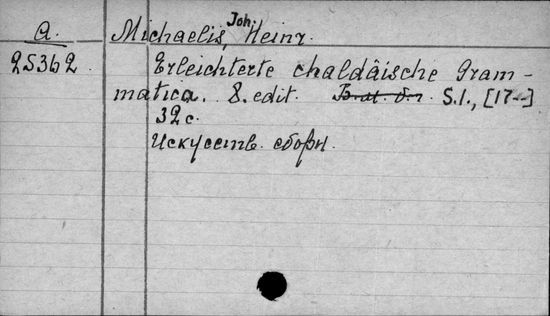 a.
Michaelis, Joh. Heinr.
25362.
Erleichterte chaldäische Gram-
matica. 8. edit. S.l., [17--]
32 c.
Искусств. сборн.